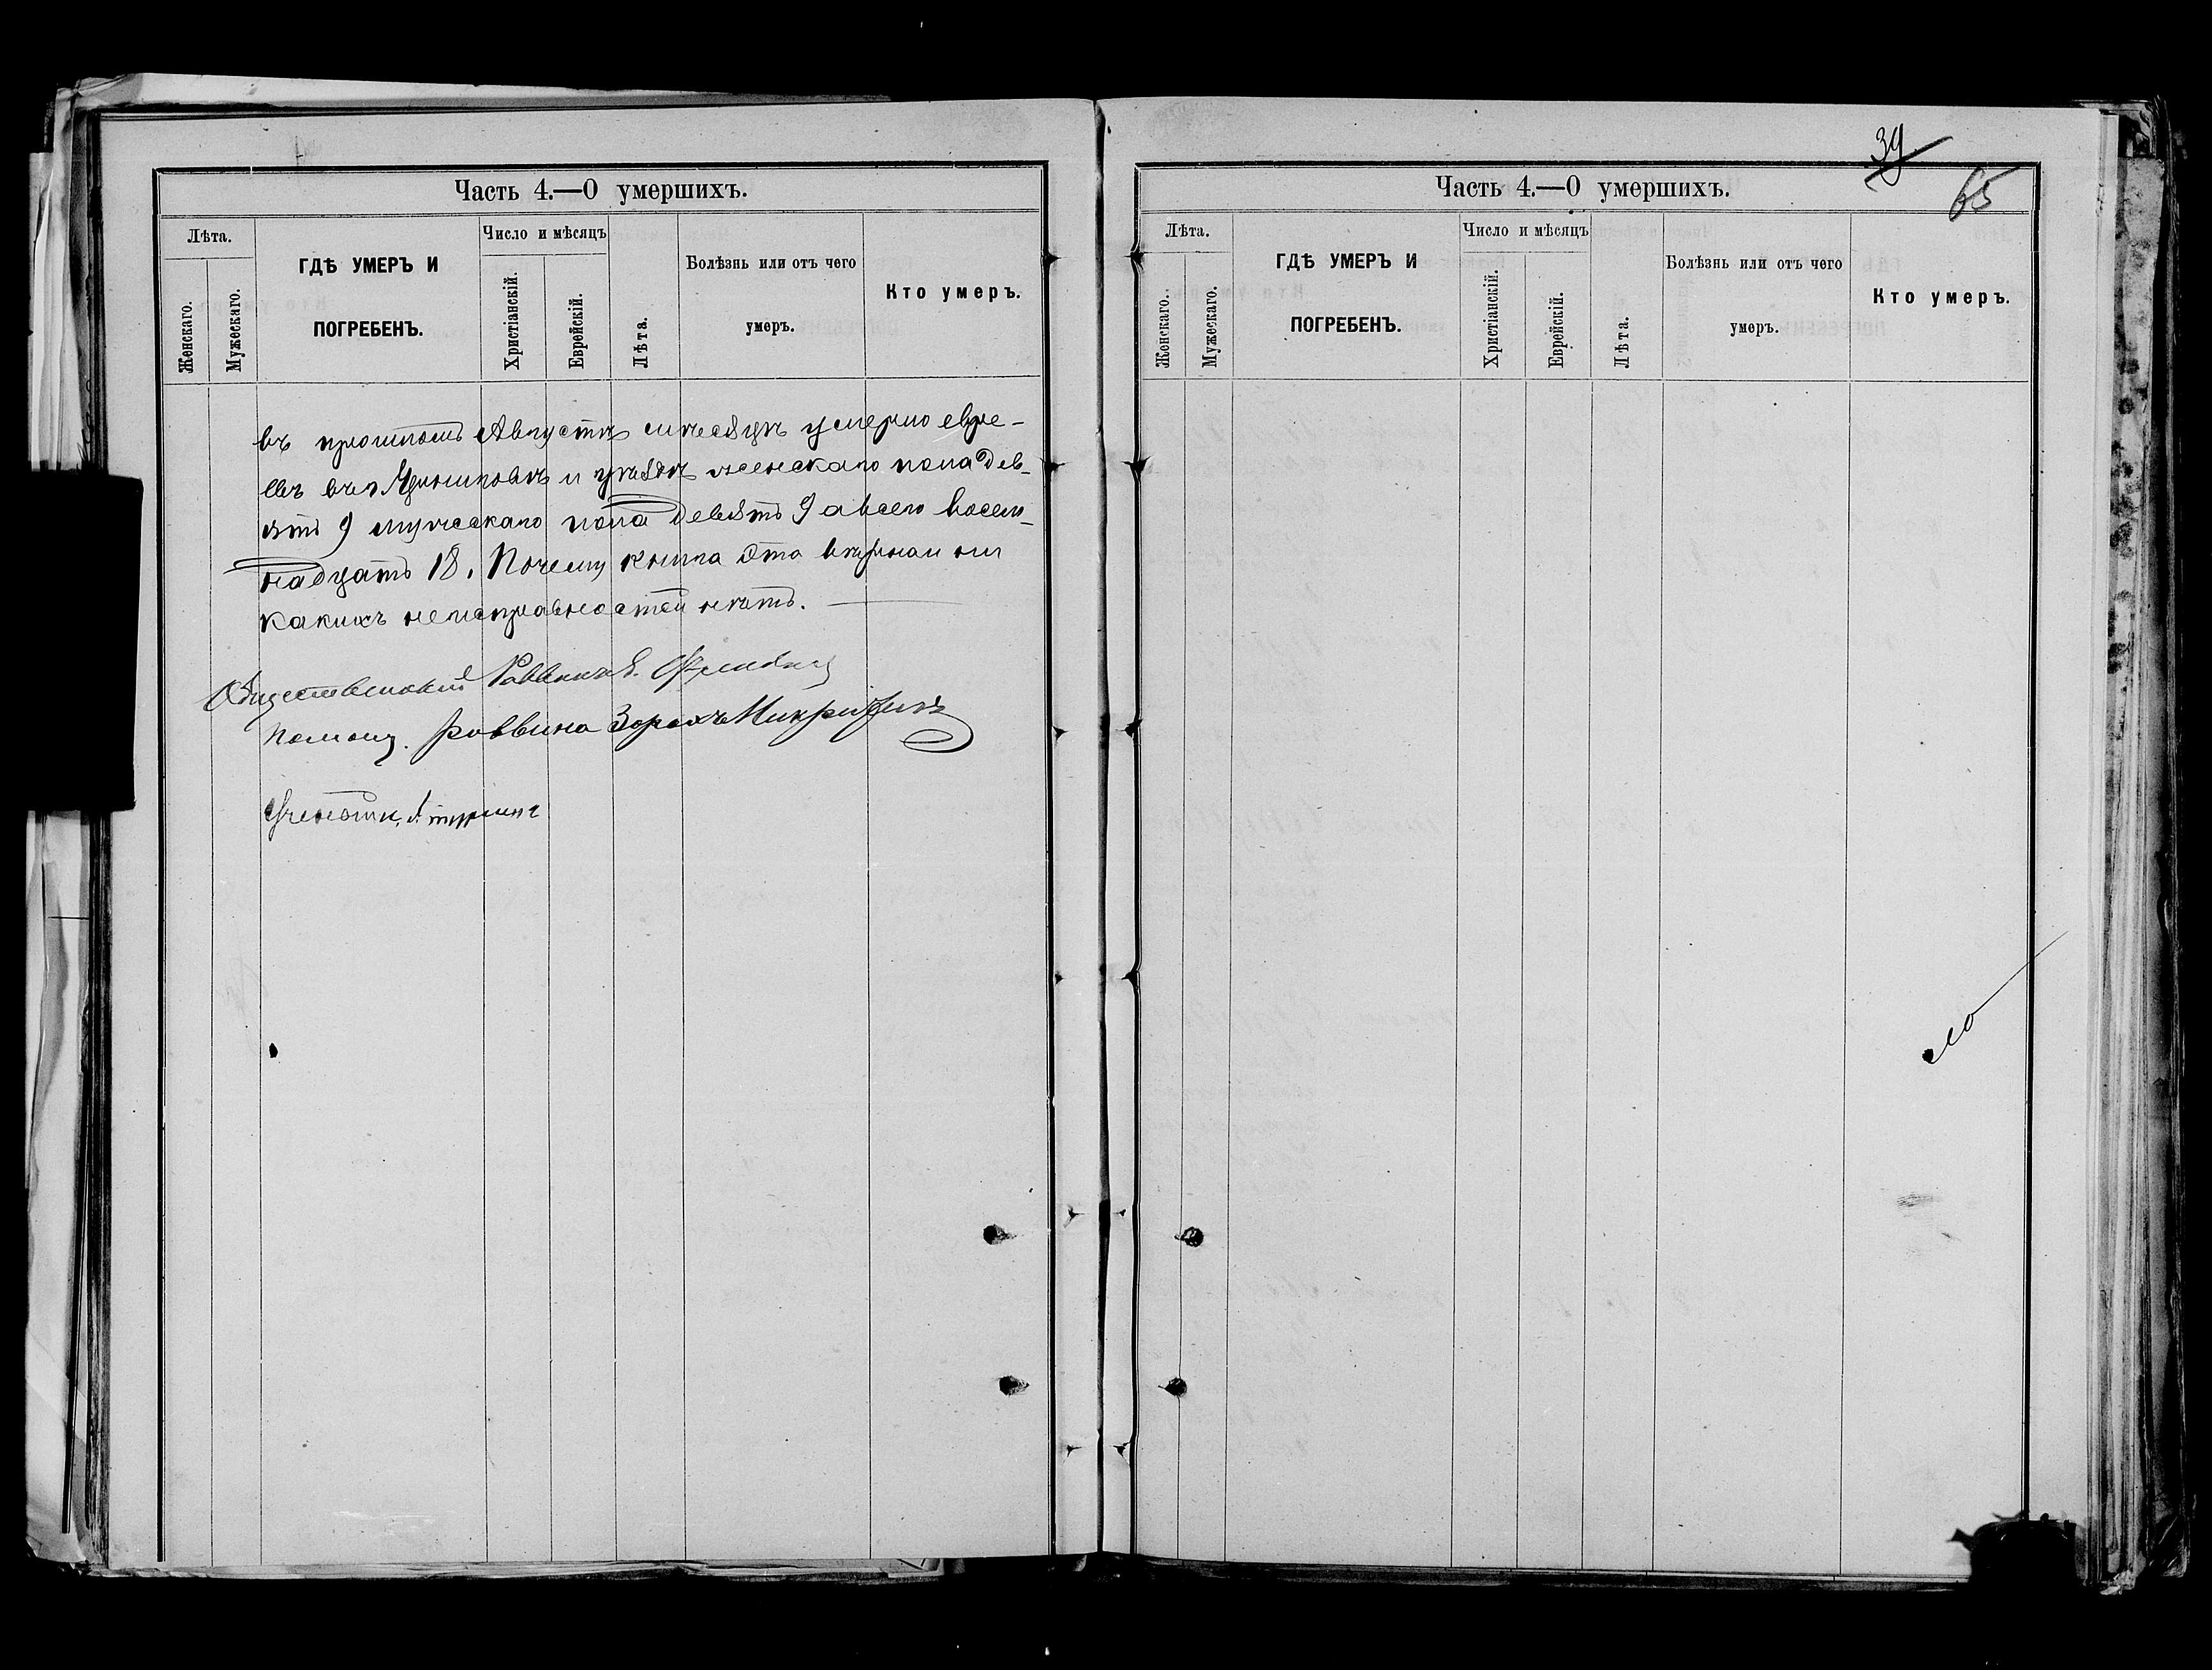 Часть 4.—О умершихъ.
Лѣта.
Женскаго.
Мужескаго.
ГДѢ УМЕРЪ И
ПОГРЕБЕНЪ.
Число и мѣсяцъ
Христіанскій.
Еврейскій.
Лѣта.
Болѣзнь или отъ чего
умеръ.
Кто умеръ.
въ прошломъ Августѣ мѣсяцѣ умерло евре-
евъ въ г и уѣздѣ женскаго пола дев-
ять 9 мужескаго пола девять 9 а всего восем-
надцать 18. Почему книга эта вѣрна и ни
какихъ неисправностей нѣтъ.
Общественный Раввинъ
Помощ. раввина Зорахъ
39
65
Часть 4.—О умершихъ.
Лѣта.
Женскаго.
Мужескаго.
ГДѢ УМЕРЪ И
ПОГРЕБЕНЪ.
Число и мѣсяцъ
Христіанскій.
Еврейскій.
Лѣта.
Болѣзнь или отъ чего
умеръ.
Кто умеръ.